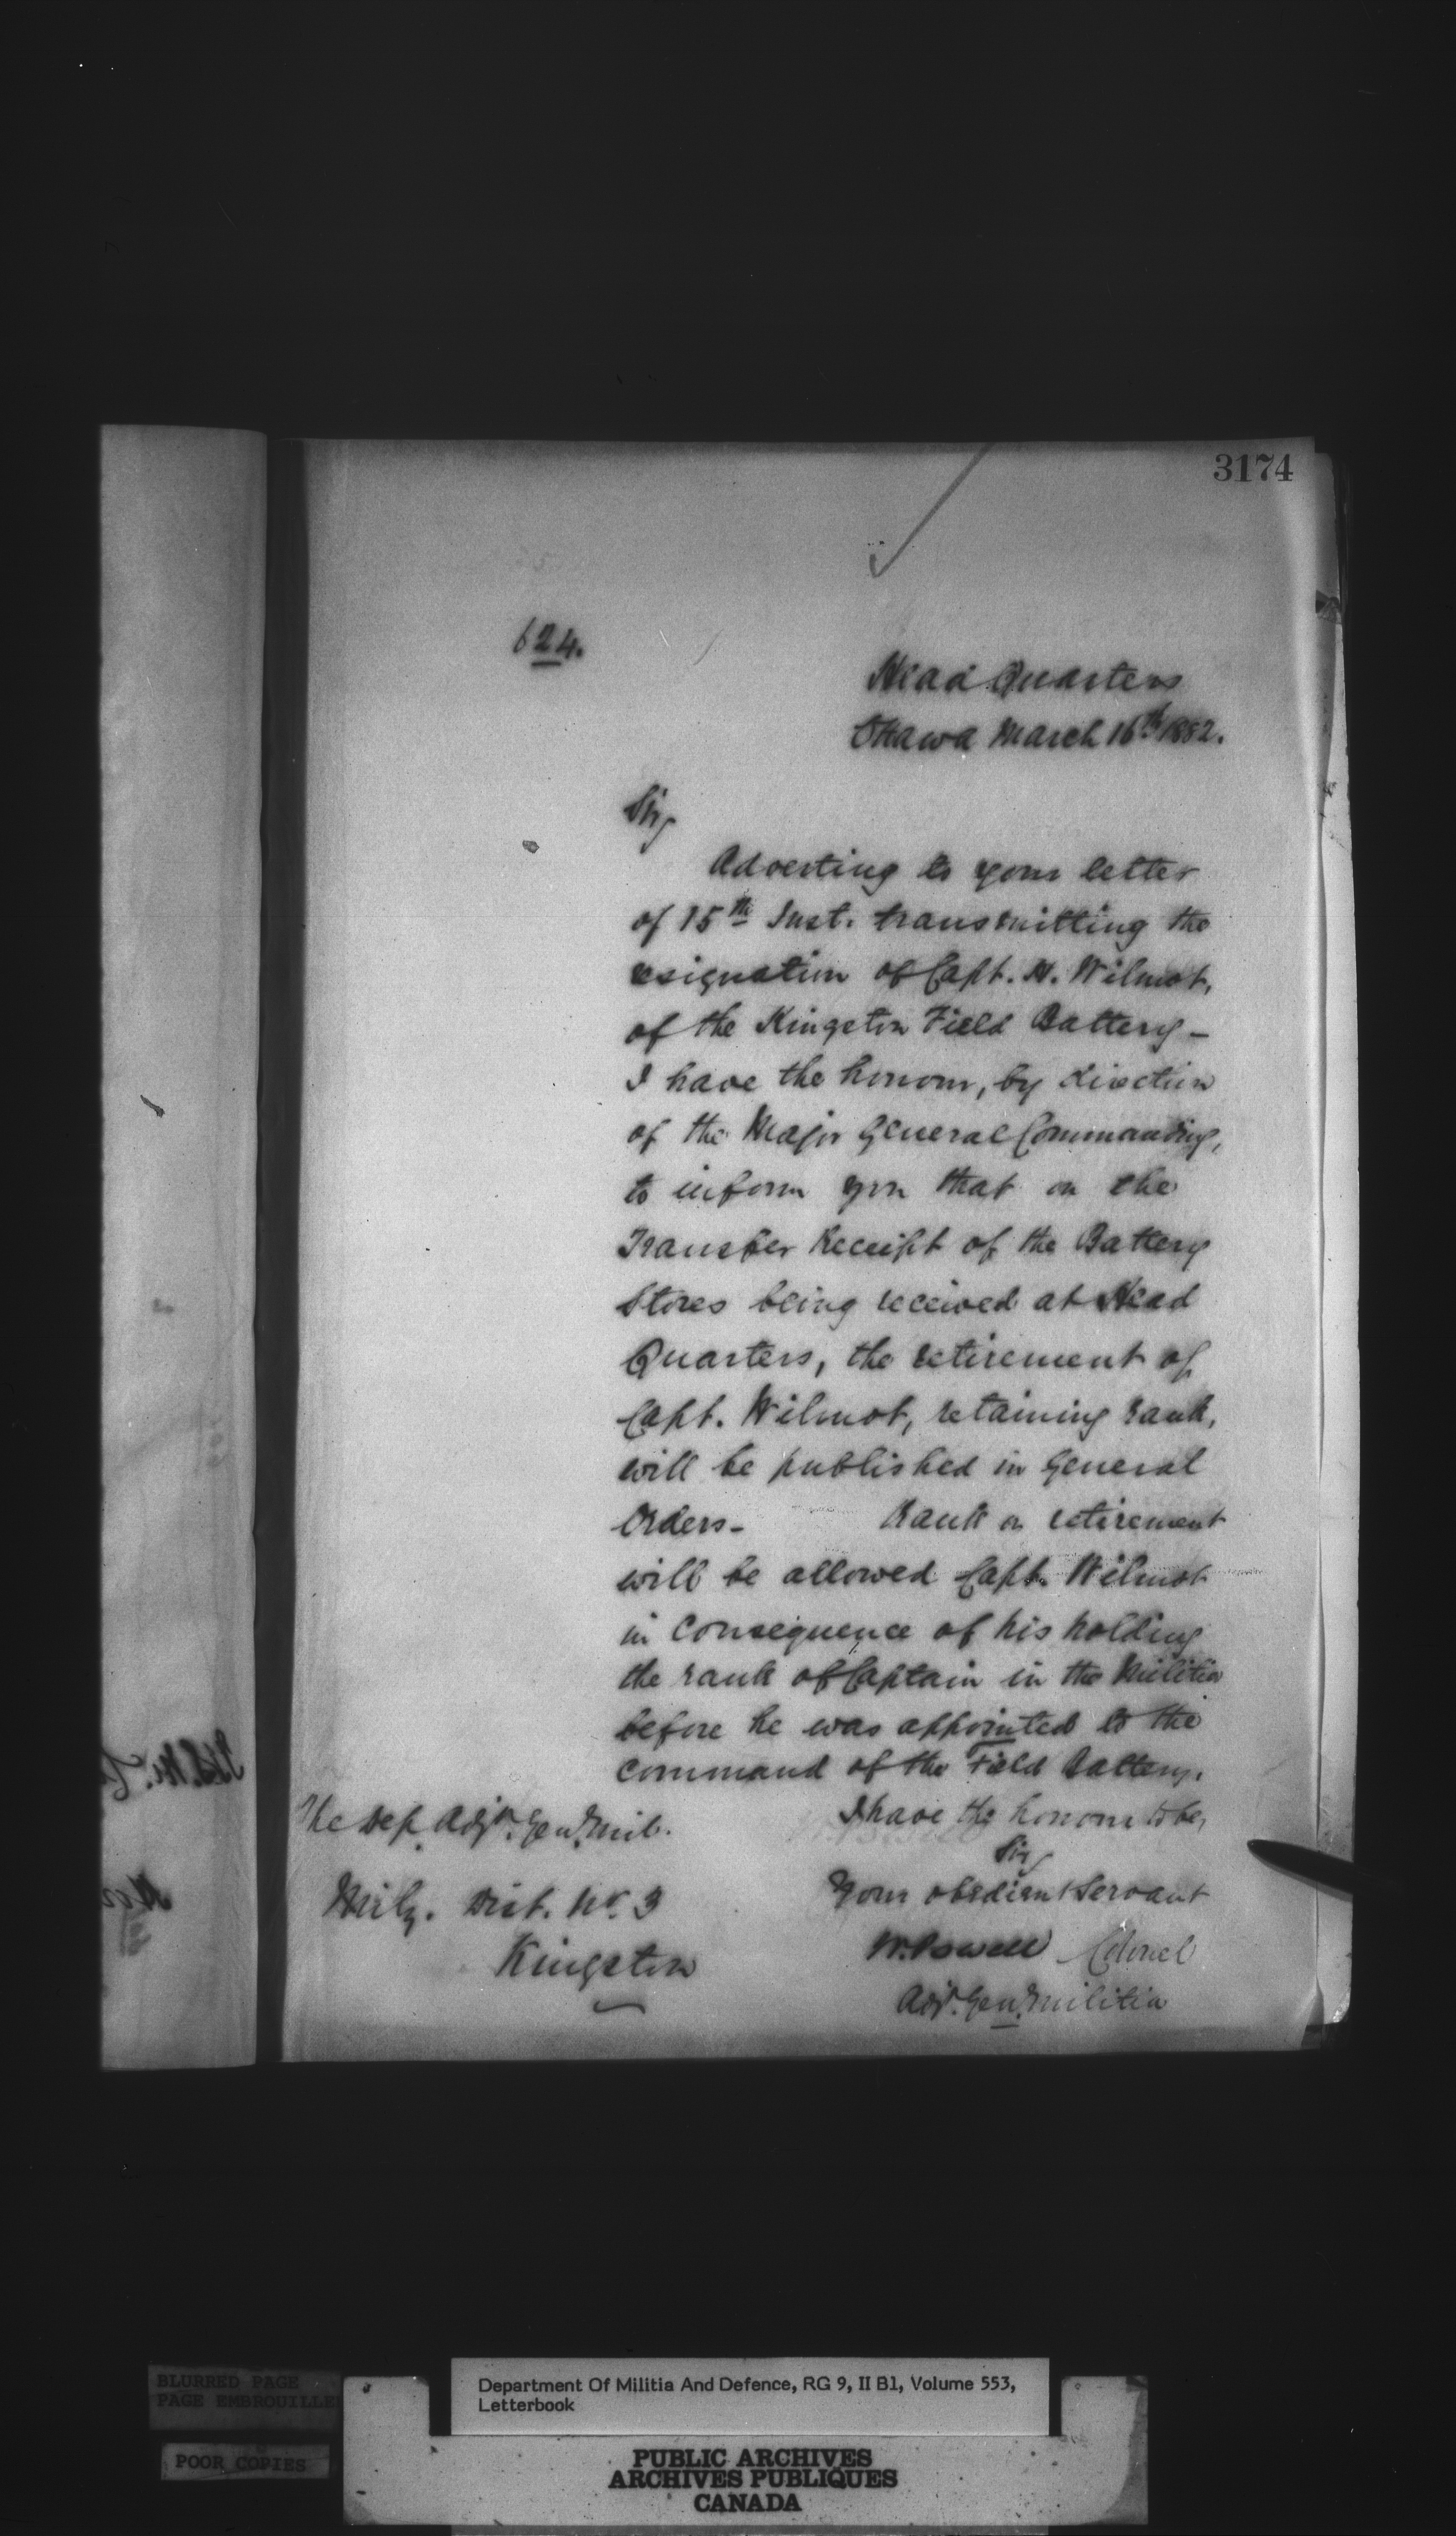 3174
624.
Head Quarters
Ottawa March 16th 1882.
Sir,
Adverting to your letter
of 15th Inst. transmitting the
resignation of Capt. H. Wilmot,
of the Kingston Field Battery -
I have the honour, by direction
of the Major General Commanding,
to inform you that on the
Transfer Receipt of the Battery
Stores being received at Head
Quarters, the retirement of
Capt. Wilmot, retaining rank,
will be published in General
Orders - Rank on retirement
will be allowed Capt. Wilmot
in consequence of his holding
the rank of Captain in the Militia
before he was appointed to the
command of the Field Battery.
I have the honour to be,
Sir,
Your obedient Servant
W. Powell Colonel
Adjt. Genl. Militia
The Dep. Adjt. Genl. Mil.
Mily. Dist. No. 3
Kingston
BLURRED PAGE
PAGE EMBROUILLE
POOR COPIES
Department Of Militia And Defence, RG 9, II B1, Volume 553,
Letterbook
PUBLIC ARCHIVES
ARCHIVES PUBLIQUES
CANADA